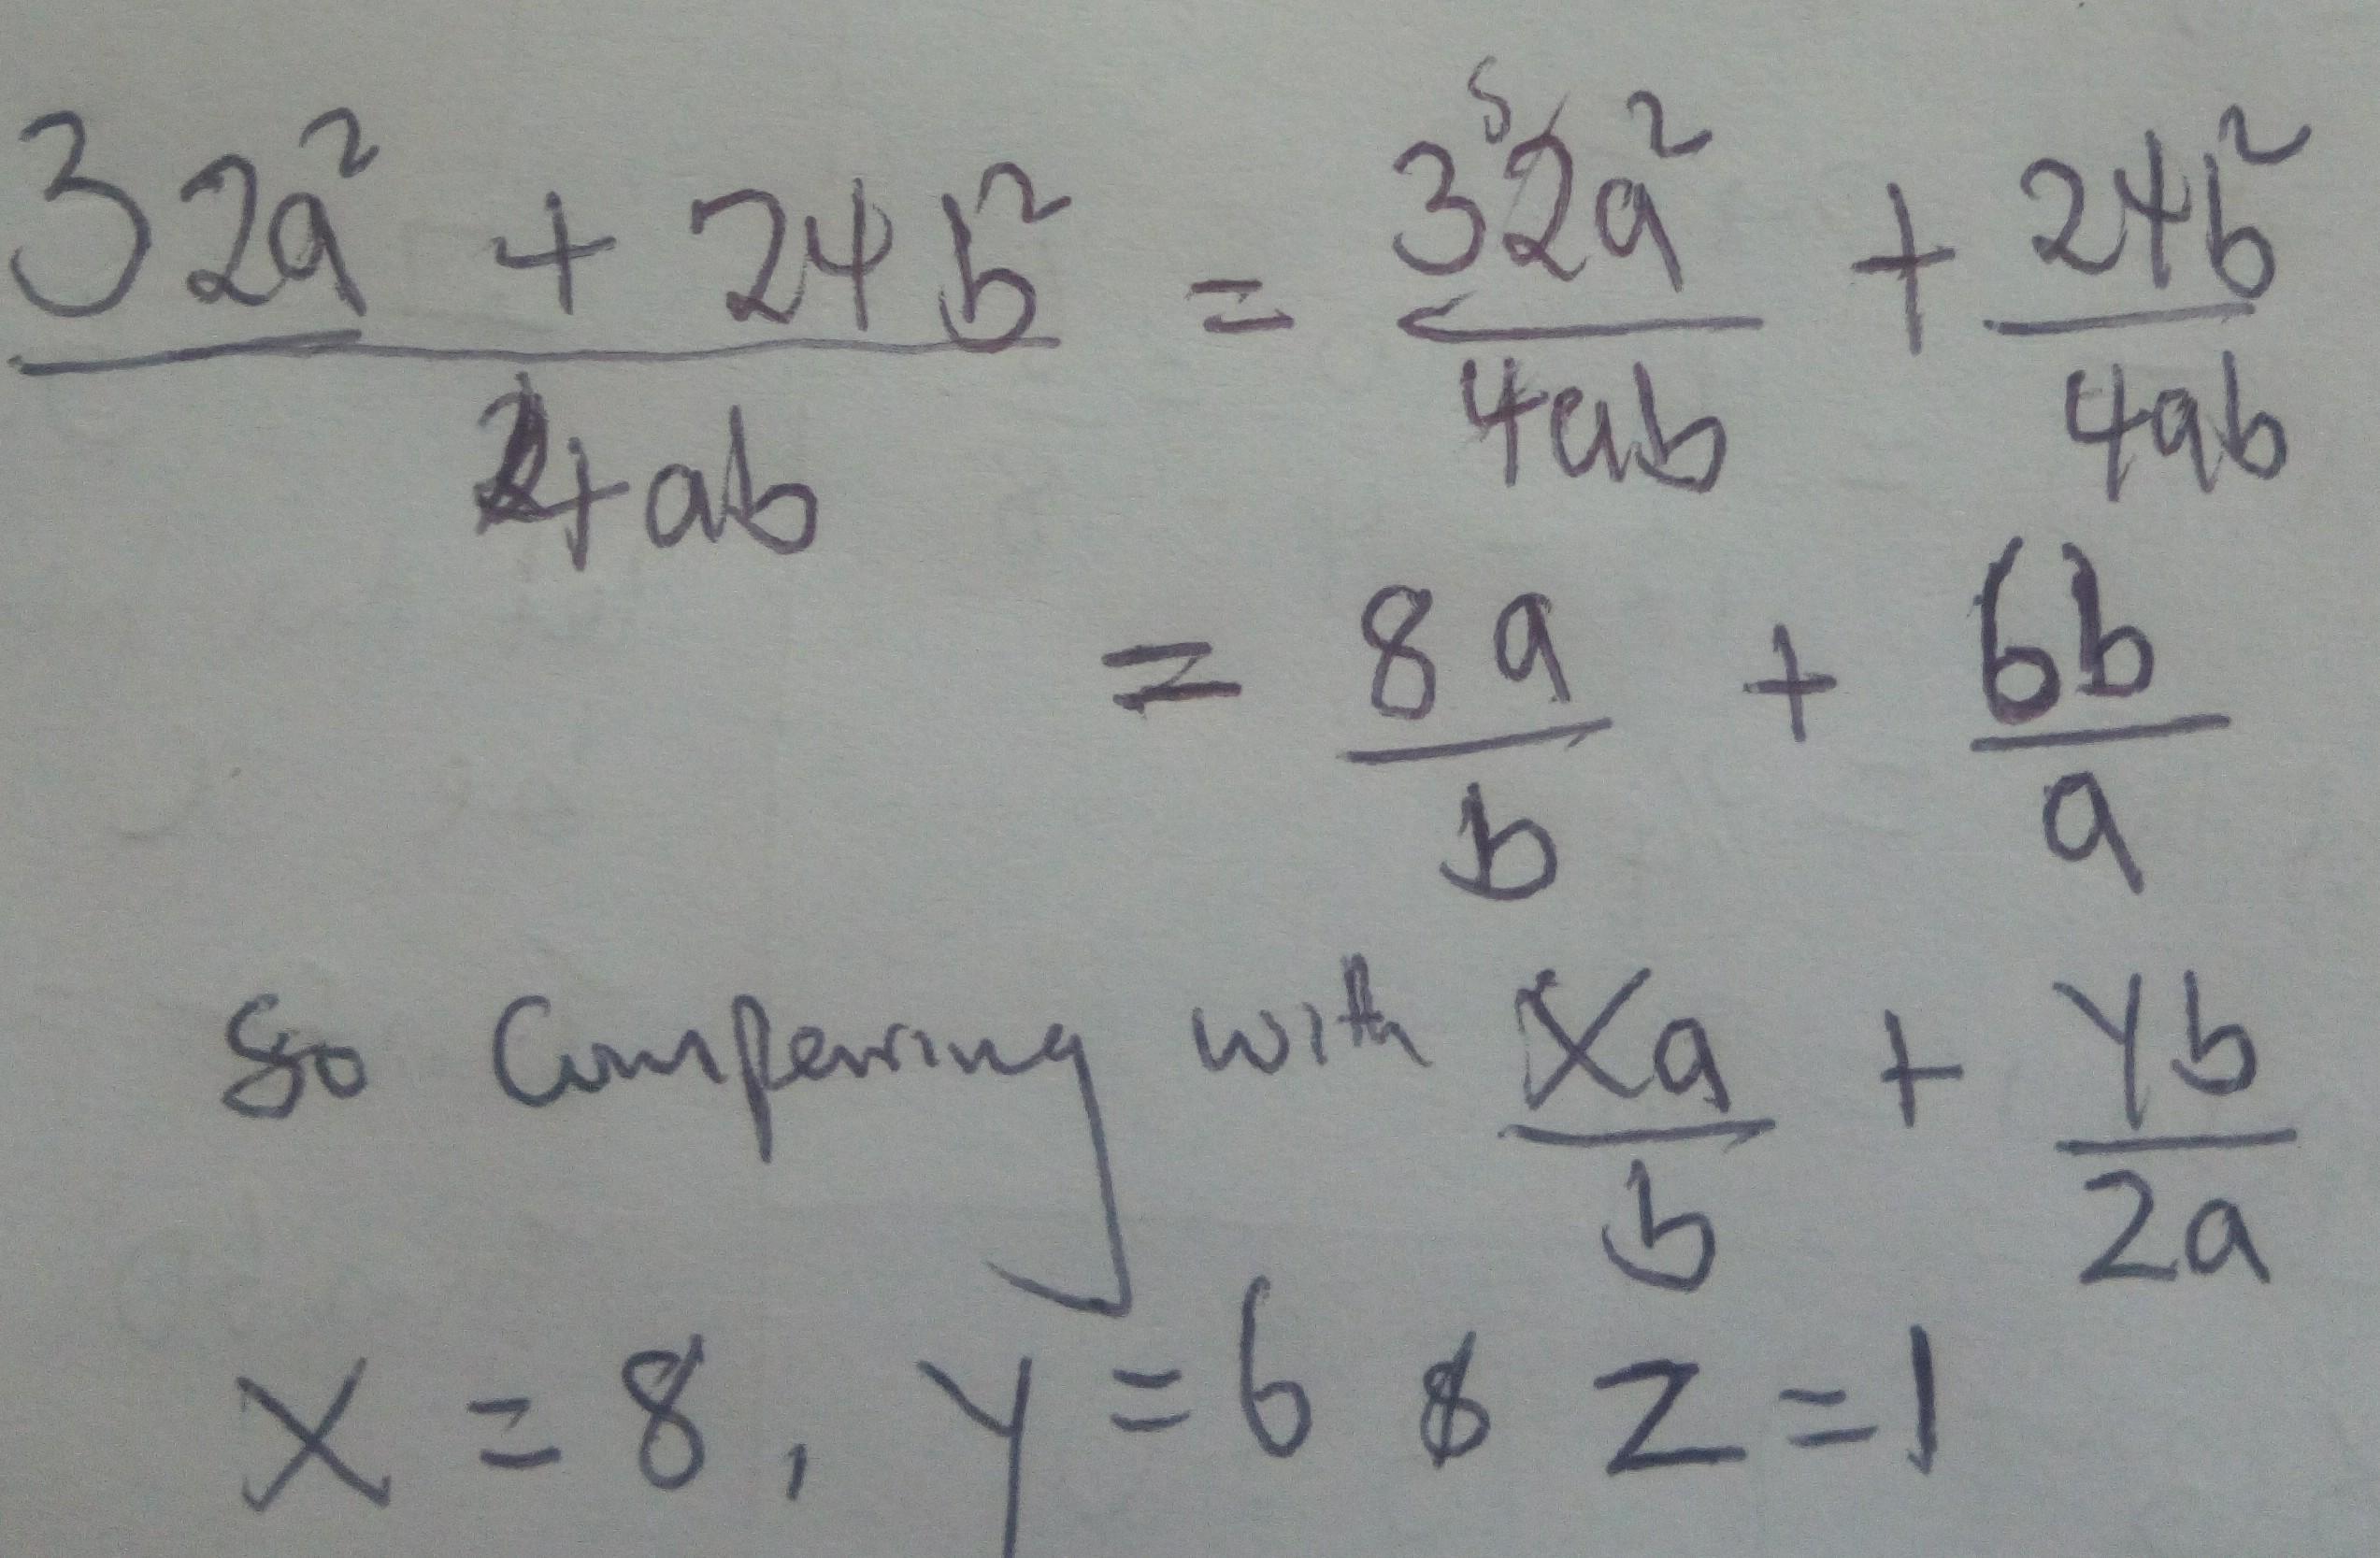 32a² + 24b² / 4ab = 32a² / 4ab + 24b² / 4ab
= 8a / b + 6b / a
So Comperring with Xa / b + Yb / Za
X = 8, Y = 6 & Z = 1